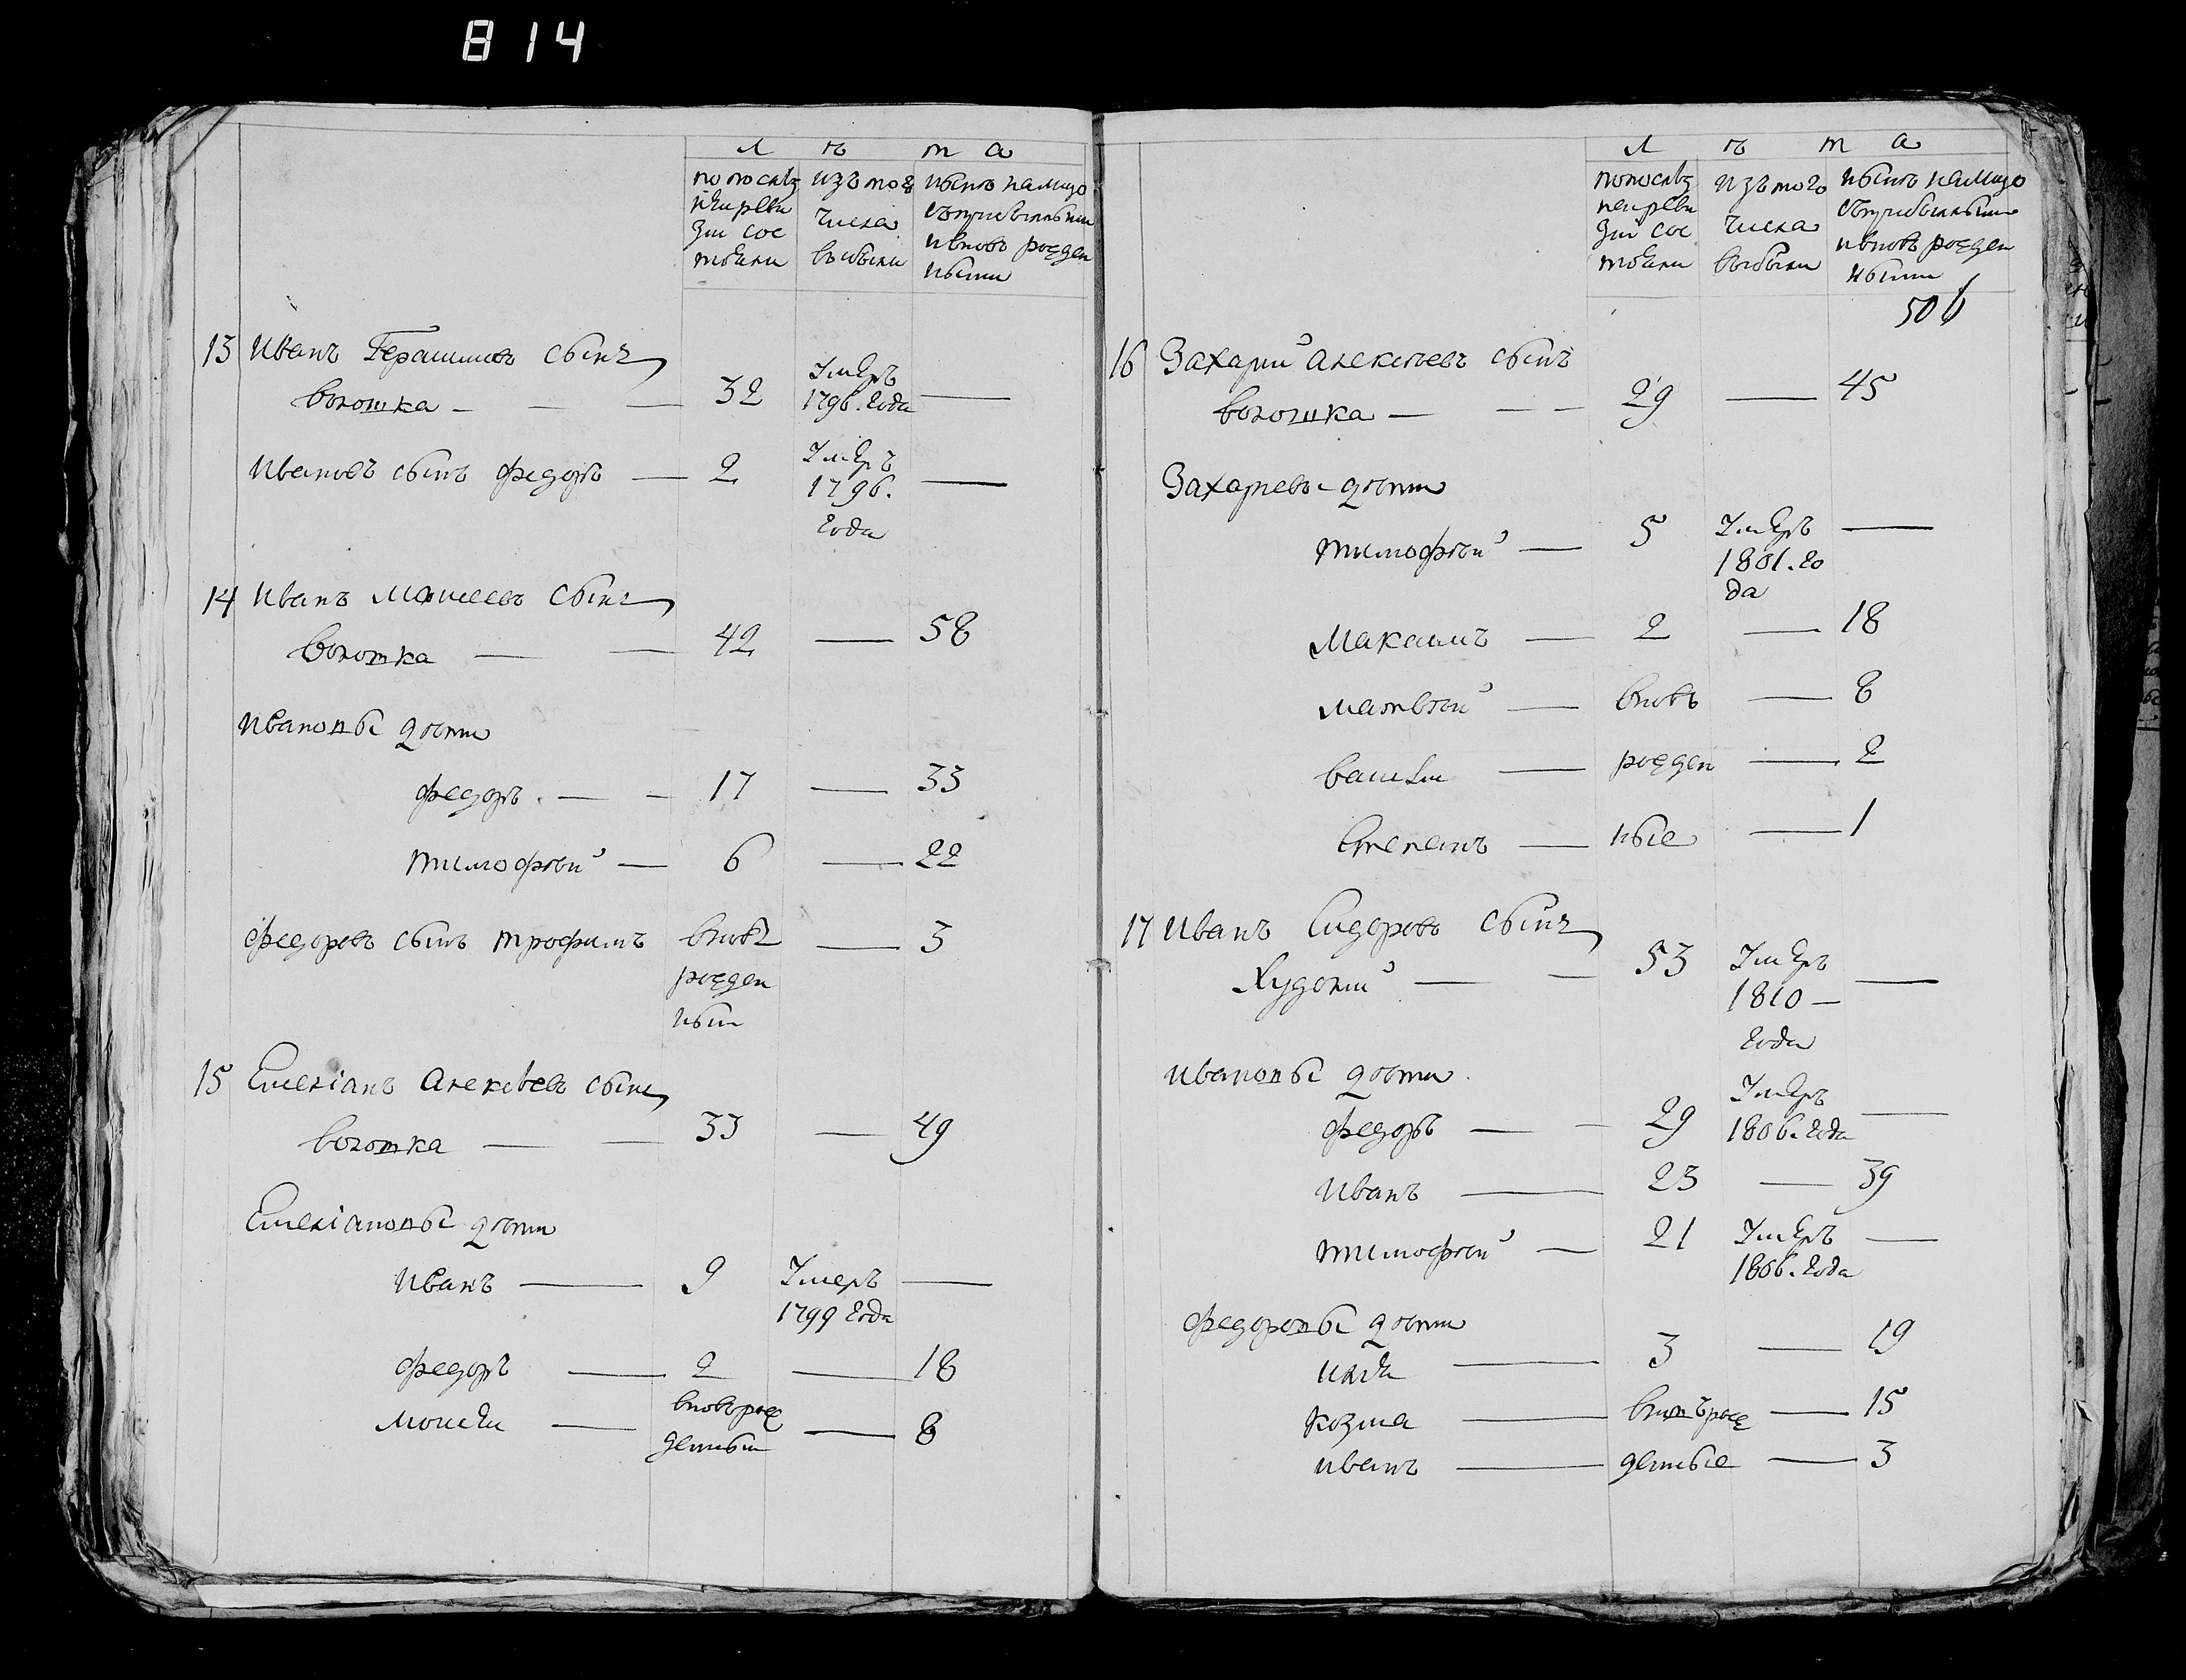 814
л ѣ т а
по послѣд
ней реви
зіи сос
тояли
изъ того
числа
выбыли
нынѣ налицо
съ прибылыми
и вновь рожден
ными
13 Иванъ Герасимовъ сынъ
волошка — — — 32 умеръ 1796. года —
Ивановъ сынъ федоръ — 2 умеръ 1796. года —
14 Иванъ Моисеевъ сынъ
Волошка — — 42 — 58
Ивановы дѣти
федоръ — — 17 — 33
тимофѣй — 6 — 22
федоровъ сынъ трофимъ вновь — 3
рожден
ный
15 Емеліанъ Алексѣевъ сынъ
волошка — — 33 — 49
Емеліановы дѣти
Иванъ — 9 умеръ 1799 года —
федоръ — 2 — 18
Моисей — вновь рож
денный — 8
л ѣ т а
по послѣд
ней реви
зіи сос
тояли
изъ того
числа
выбыли
нынѣ налицо
съ прибылыми
и вновь рожден
ными
506
16 Захарій алексѣевъ сынъ
волошка — — — 29 — 45
Захарьевы дѣти
тимофѣй — 5 умеръ 1801. го
да —
Максимъ — 2 — 18
матвѣй — вновь — 8
василій — рожден — 2
степанъ — ные — 1
17 Иванъ Сидоровъ сынъ
Худолій — — 53 умеръ 1810 —
года —
Ивановы дѣти
федоръ — — 29 умеръ 1806. года —
Иванъ — 23 — 39
тимофѣй — 21 умеръ 1806. года —
федоровы дѣти
Илья — 3 — 19
козма — вновь рож — 15
иванъ — денные — 3